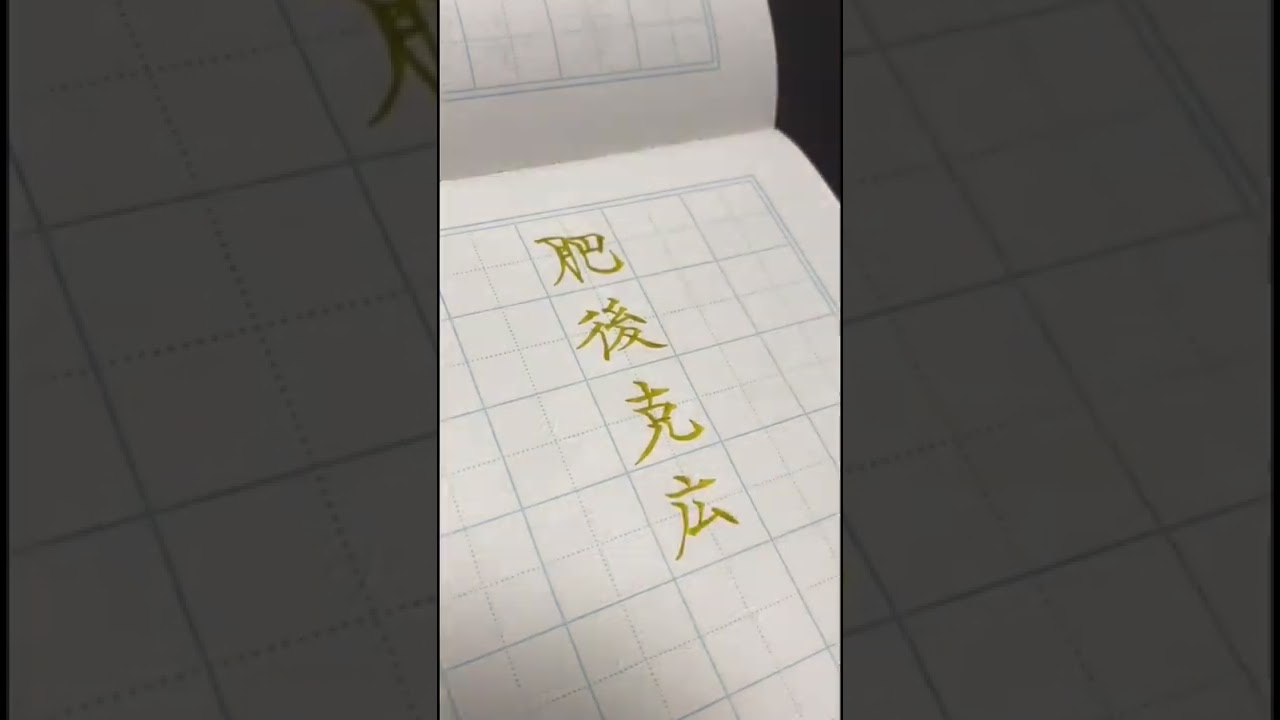 肥後克広